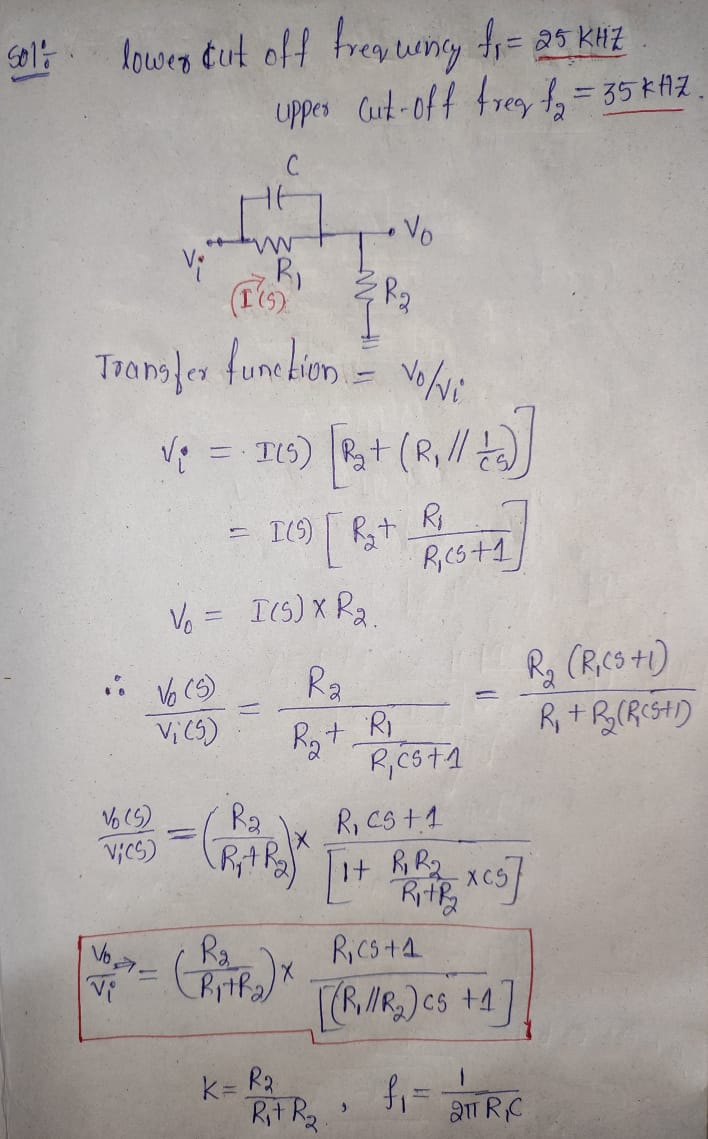 Sol:- lower cut off frequency f₁ = 25 KHZ.
upper cut-off freq f₂ = 35 KHZ.
C
Vi R₁ Vo
I(s) R₂
Transfer function = Vo/Vi
Vi = I(s) [R₂ + (R₁ // 1/CS)]
= I(s) [R₂ + R₁/(R₁CS+1)]
Vo = I(s) x R₂.
∴ Vo(s)/Vi(s) = R₂/(R₂ + R₁/(R₁CS+1)) = R₂(R₁CS+1)/(R₁ + R₂(R₁CS+1))
Vo(s)/Vi(s) = (R₂/(R₁+R₂)) x (R₁CS+1)/[1+ R₁R₂/(R₁+R₂) xCS]
Vo/Vi ⇒ = (R₂/(R₁+R₂)) x (R₁CS+1)/[(R₁//R₂)CS +1]
K = R₂/(R₁+R₂), f₁ = 1/(2π R₁C)